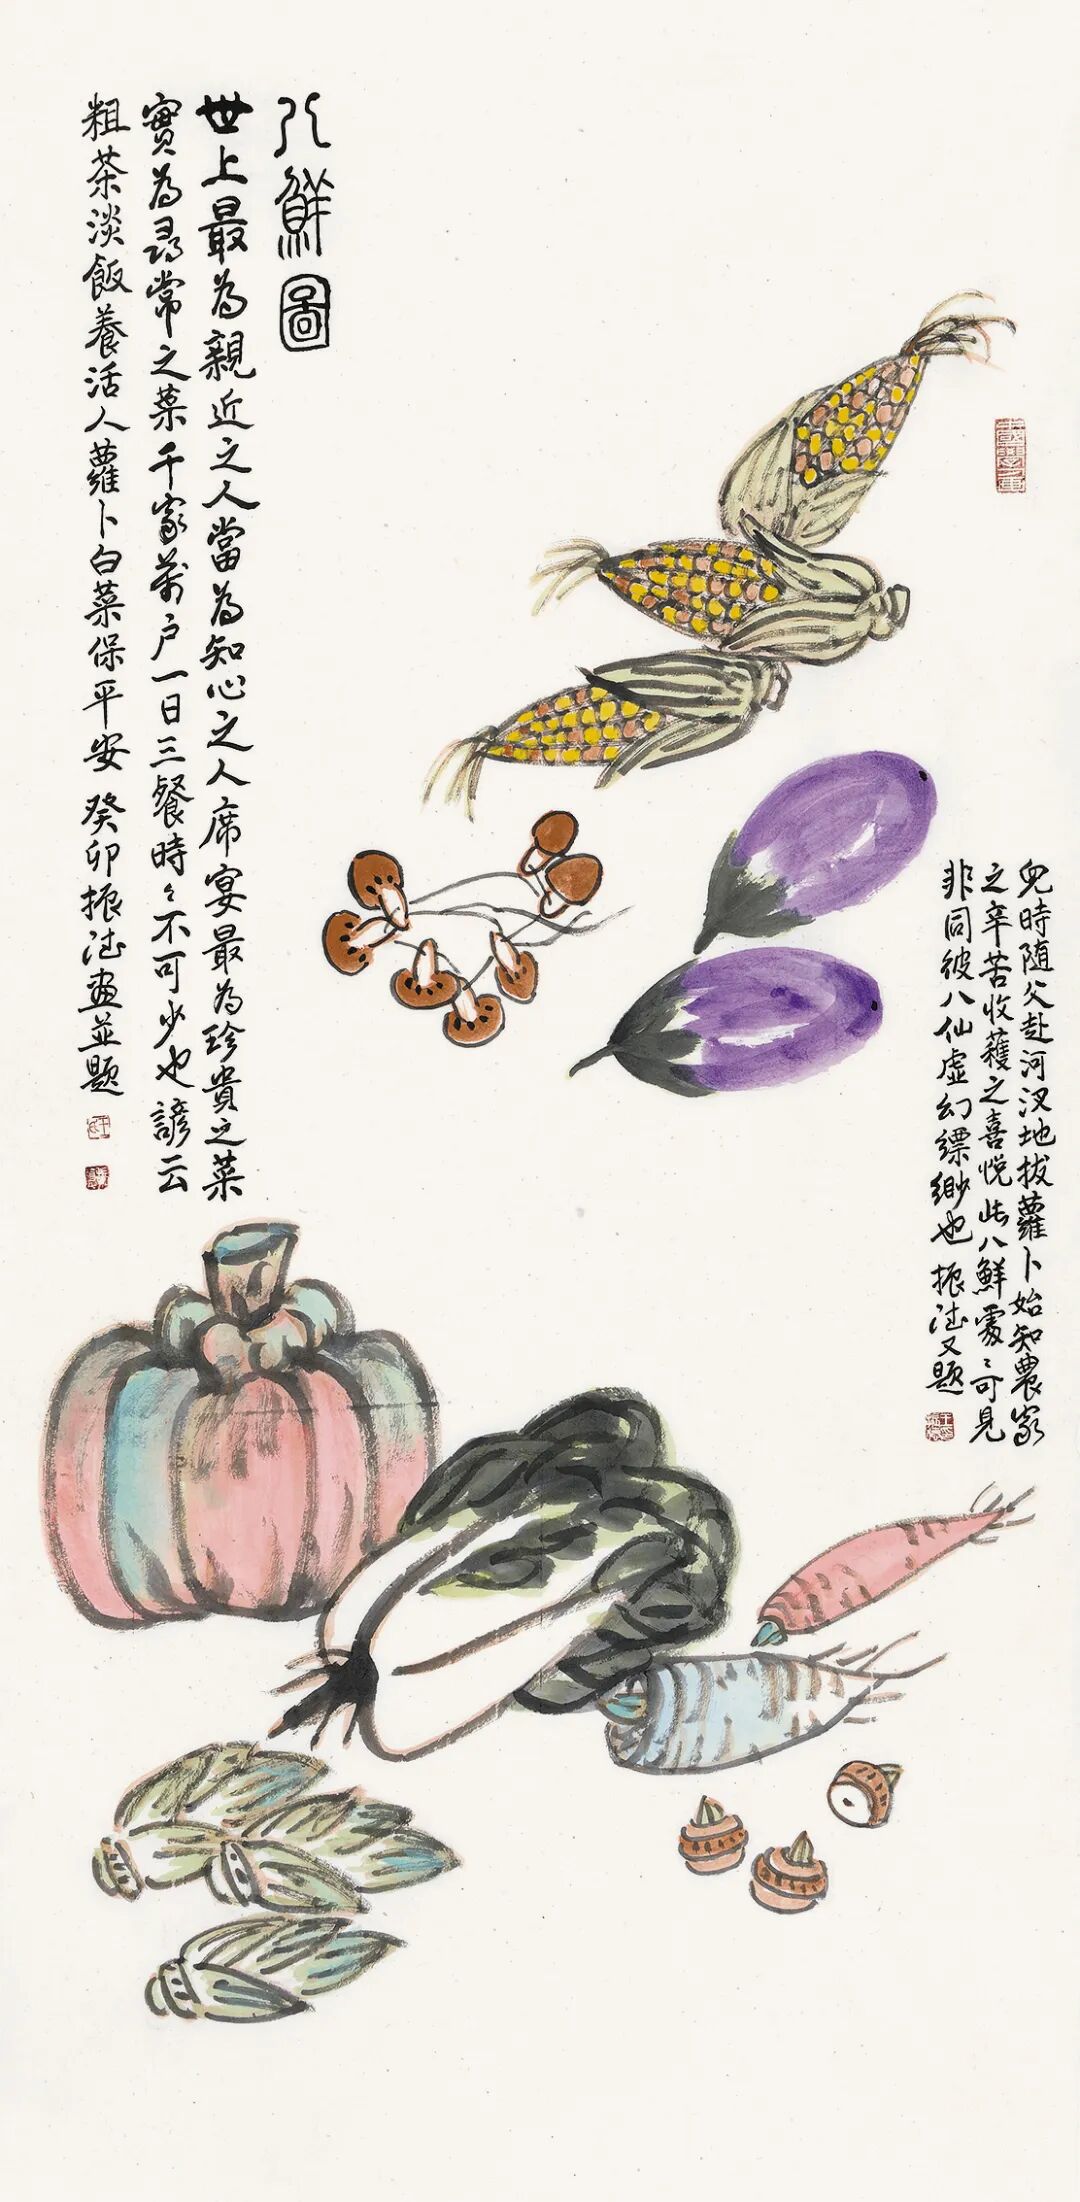 八鮮圖
世上最為親近之人當為知心之人席宴最為珍貴之菜
實為尋常之菜千家萬户一日三餐時々不可少也諺云
粗茶淡飯養活人蘿卜白菜保平安 癸卯振法畫並題
兒時随父赴河汊地拔蘿卜始知農家
之辛苦收穫之喜悦此八鮮處々可見
非同彼八仙虚幻縹緲也 振法又題